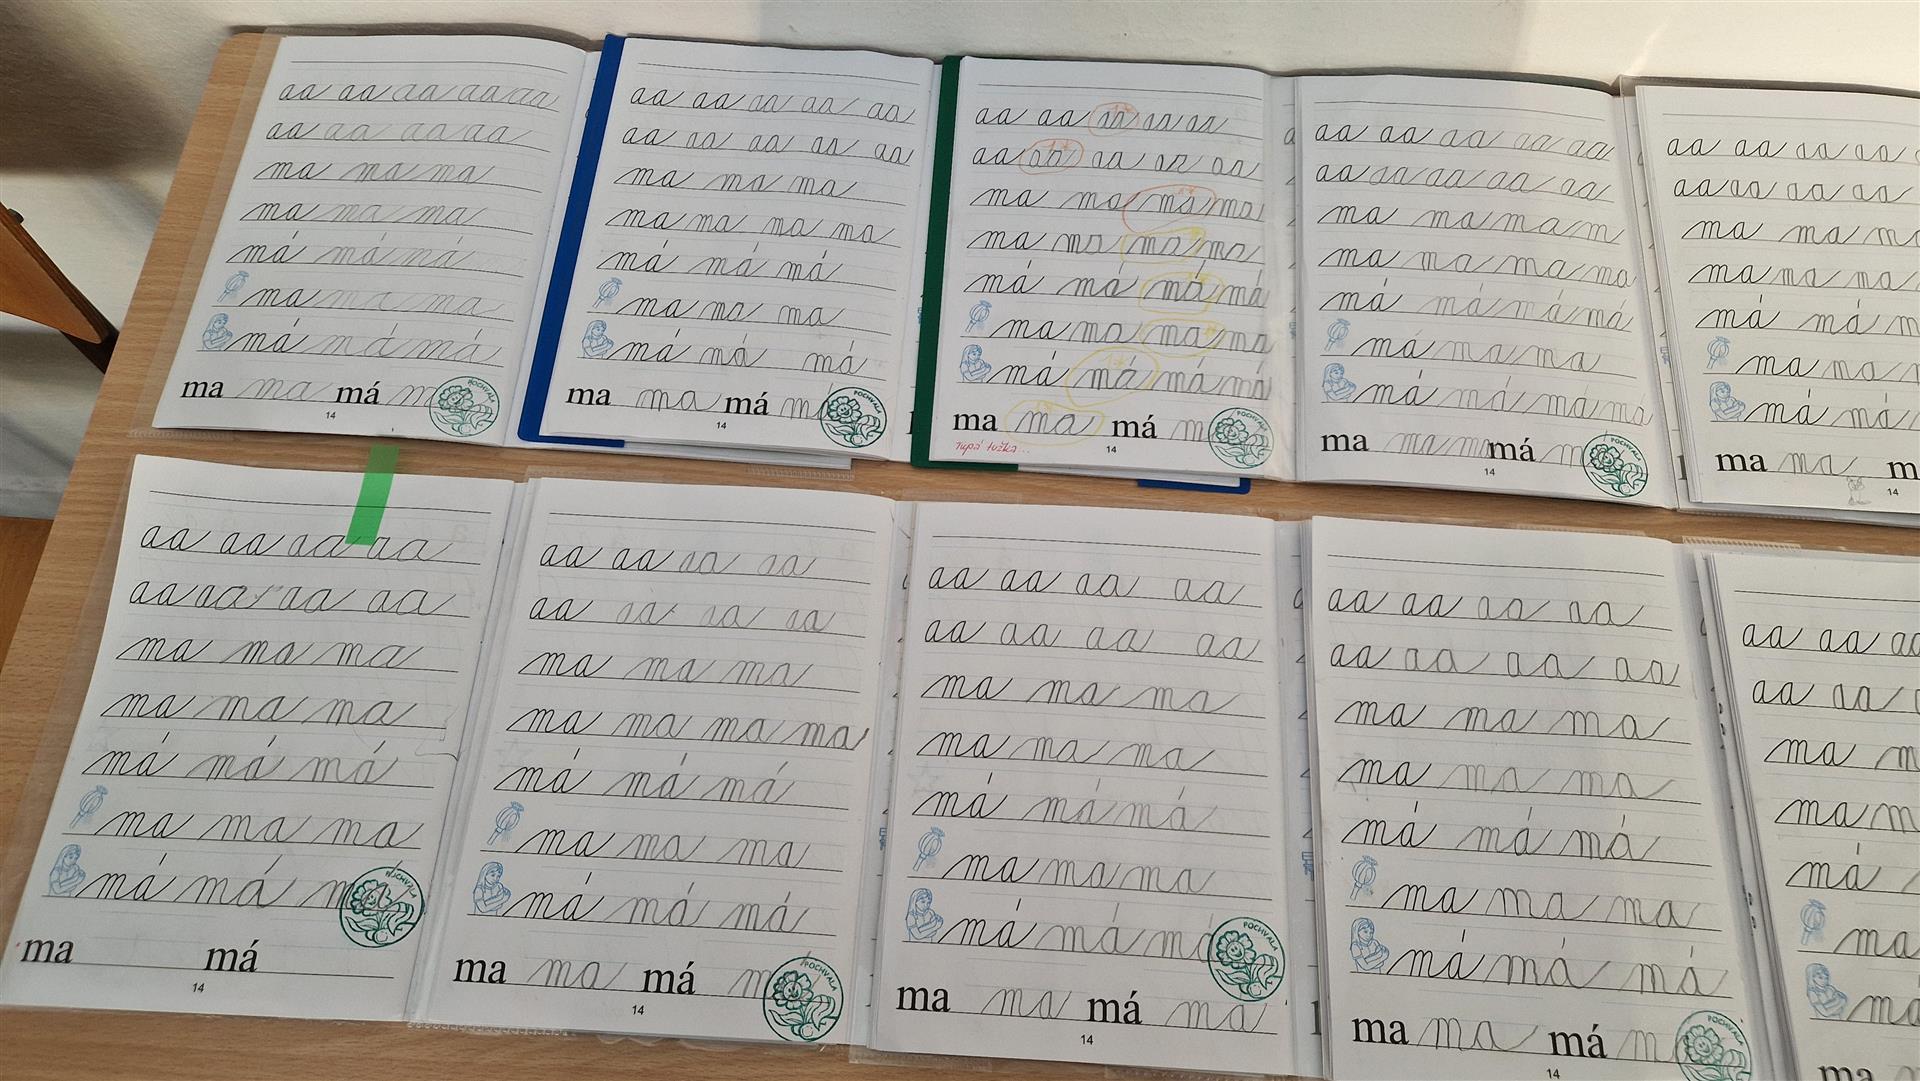 aa aa aa aa aa
aa aa aa aa
ma ma ma
ma ma ma
má má má
ma ma ma
má má má
ma ma má
14
POCHVALA
aa aa aa aa aa
aa aa aa aa aa
ma ma ma
ma ma ma ma
má má má
ma ma ma
má má má
ma ma má
14
POCHVALA
aa aa aa aa aa
aa aa aa aa aa
ma ma ma ma
ma ma ma ma
má má má má
ma ma ma ma
má má má má
ma ma má
Tupá tužka...
14
POCHVALA
aa aa aa aa aa
aa aa aa aa aa
ma ma ma m
ma ma ma ma
má má má má
má ma ma
má má má má
ma ma má
14
POCHVALA
aa aa aa aa
aa aa aa aa
ma ma
ma ma ma
má má
ma ma
má má
ma ma
14
aa aa aa aa
aa aa aa aa
ma ma ma
ma ma ma
má má má
ma ma ma
má má
ma má
14
POCHVALA
aa aa aa aa
aa aa aa aa
ma ma ma
ma ma ma ma
má má má
ma ma ma
má má má
ma ma má
14
POCHVALA
aa aa aa aa
aa aa aa aa
ma ma ma
ma ma ma
má má má
ma ma ma
má má má
ma ma má ma
14
POCHVALA
aa aa aa aa
aa aa aa aa
ma ma ma
ma ma ma
má má má
ma ma ma
má má má
ma ma má
14
POCHVALA
aa aa aa
aa aa
ma
ma
má
ma
má
ma